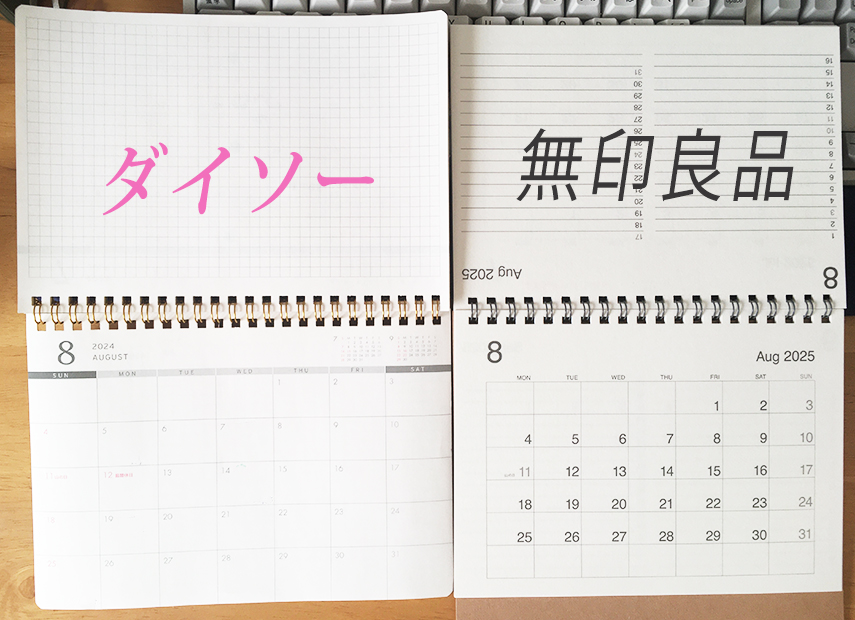 ダイソー
8
2024
AUGUST
7 9
SUN MON TUE WED THU FRI SAT
1 2 3
4 5 6 7 8 9 10
11 12 13 14 15 16 17
18 19 20 21 22 23 24
25 26 27 28 29 30 31
無印良品
8 Aug 2025
1 17
2 18
3 19
4 20
5 21
6 22
7 23
8 24
9 25
10 26
11 27
12 28
13 29
14 30
15 31
16
8 Aug 2025
MON TUE WED THU FRI SAT SUN
1 2 3
4 5 6 7 8 9 10
11 12 13 14 15 16 17
18 19 20 21 22 23 24
25 26 27 28 29 30 31